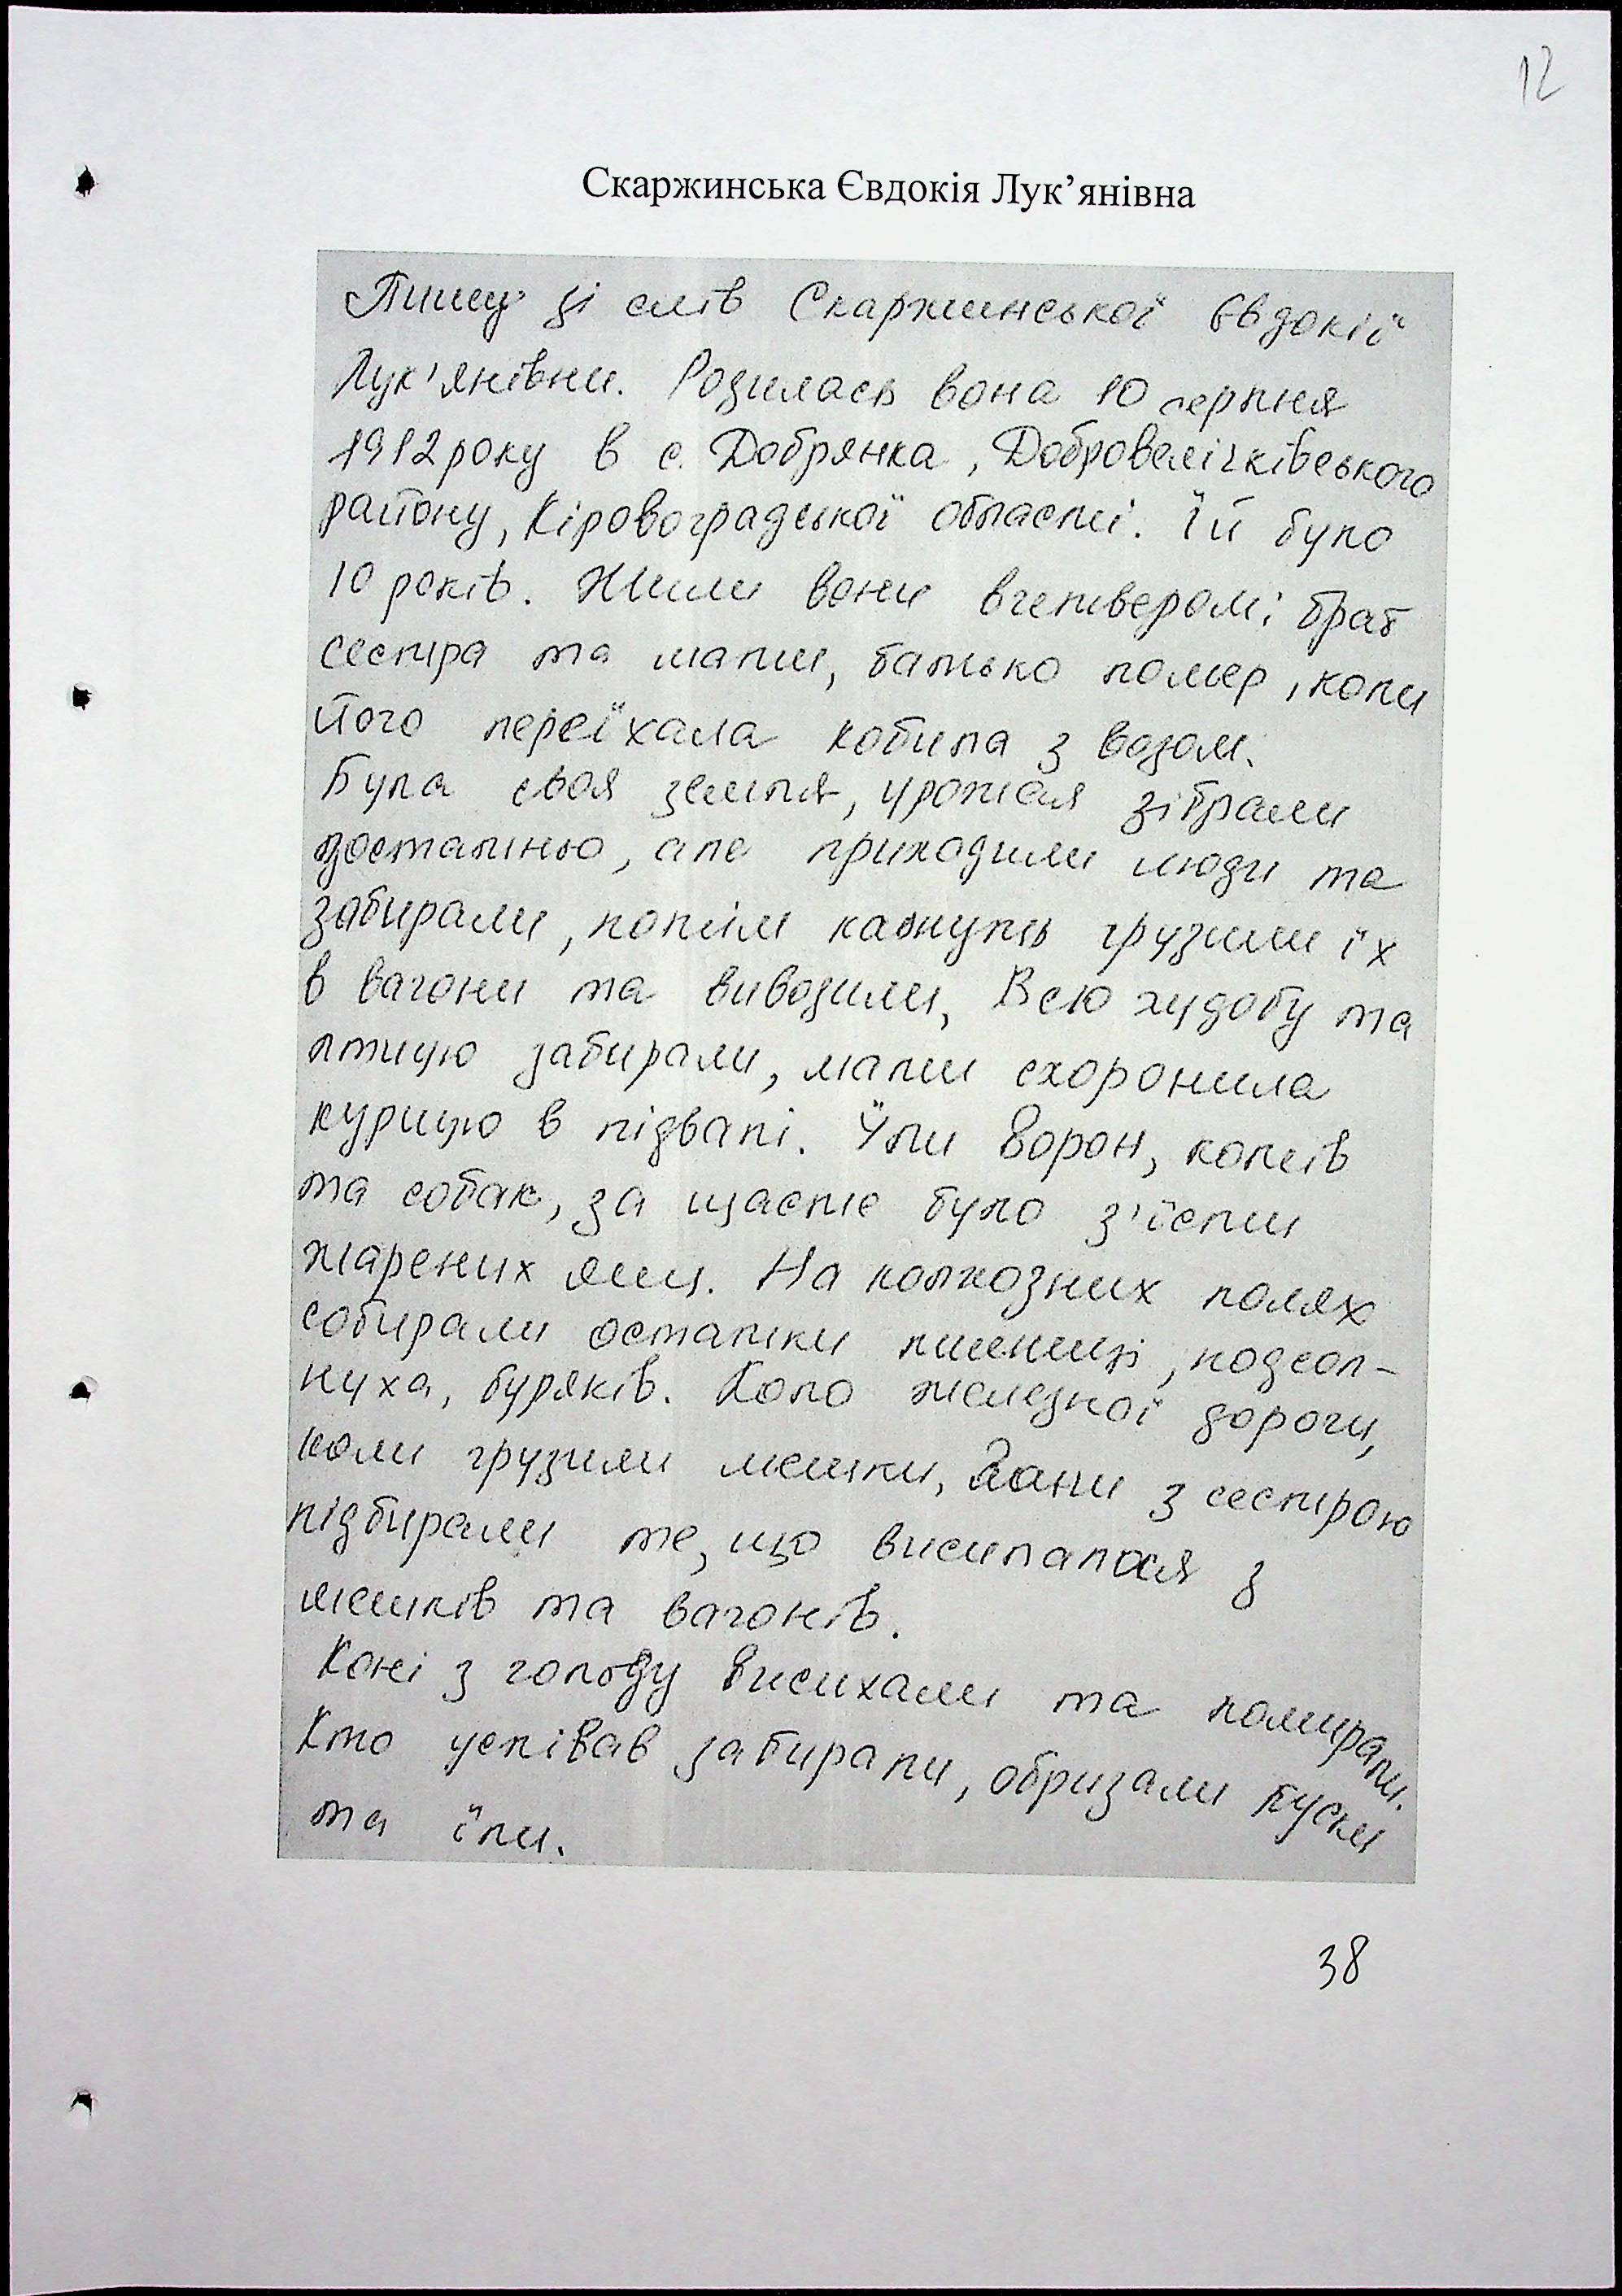 12
Скаржинська Євдокія Лук’янівна
Пишу зі слів Скаржинської Євдокії
Лук'янівни. Родилась вона 10 серпня
1912 року в с. Добрянка, Добровелічківського
району, Кіровоградської області. Їй було
10 років. Жили вони вчетвером: брат
сестра та мати, батько помер, коли
його переїхала кобила з возом.
Була своя земля, урожая зібрали
достатньо, але приходили люди та
забирали, потім кажуть грузили їх
в вагони та вивозили, Всю худобу та
птицю забирали, мати схоронила
курицю в підвалі. Їли ворон, котів
та собак, за щастє було з'їсти
жарених яиц. На колхозних полях
собирали остатки пшениці, подсол-
нуха, буряків. Коло железної дороги,
коли грузили мешки, вони з сестрою
підбирали те, що висипалося з
мешків та вагонів.
Коні з голоду висихали та помирали.
Кто успівав забирали, обризали куски
та їли.
38